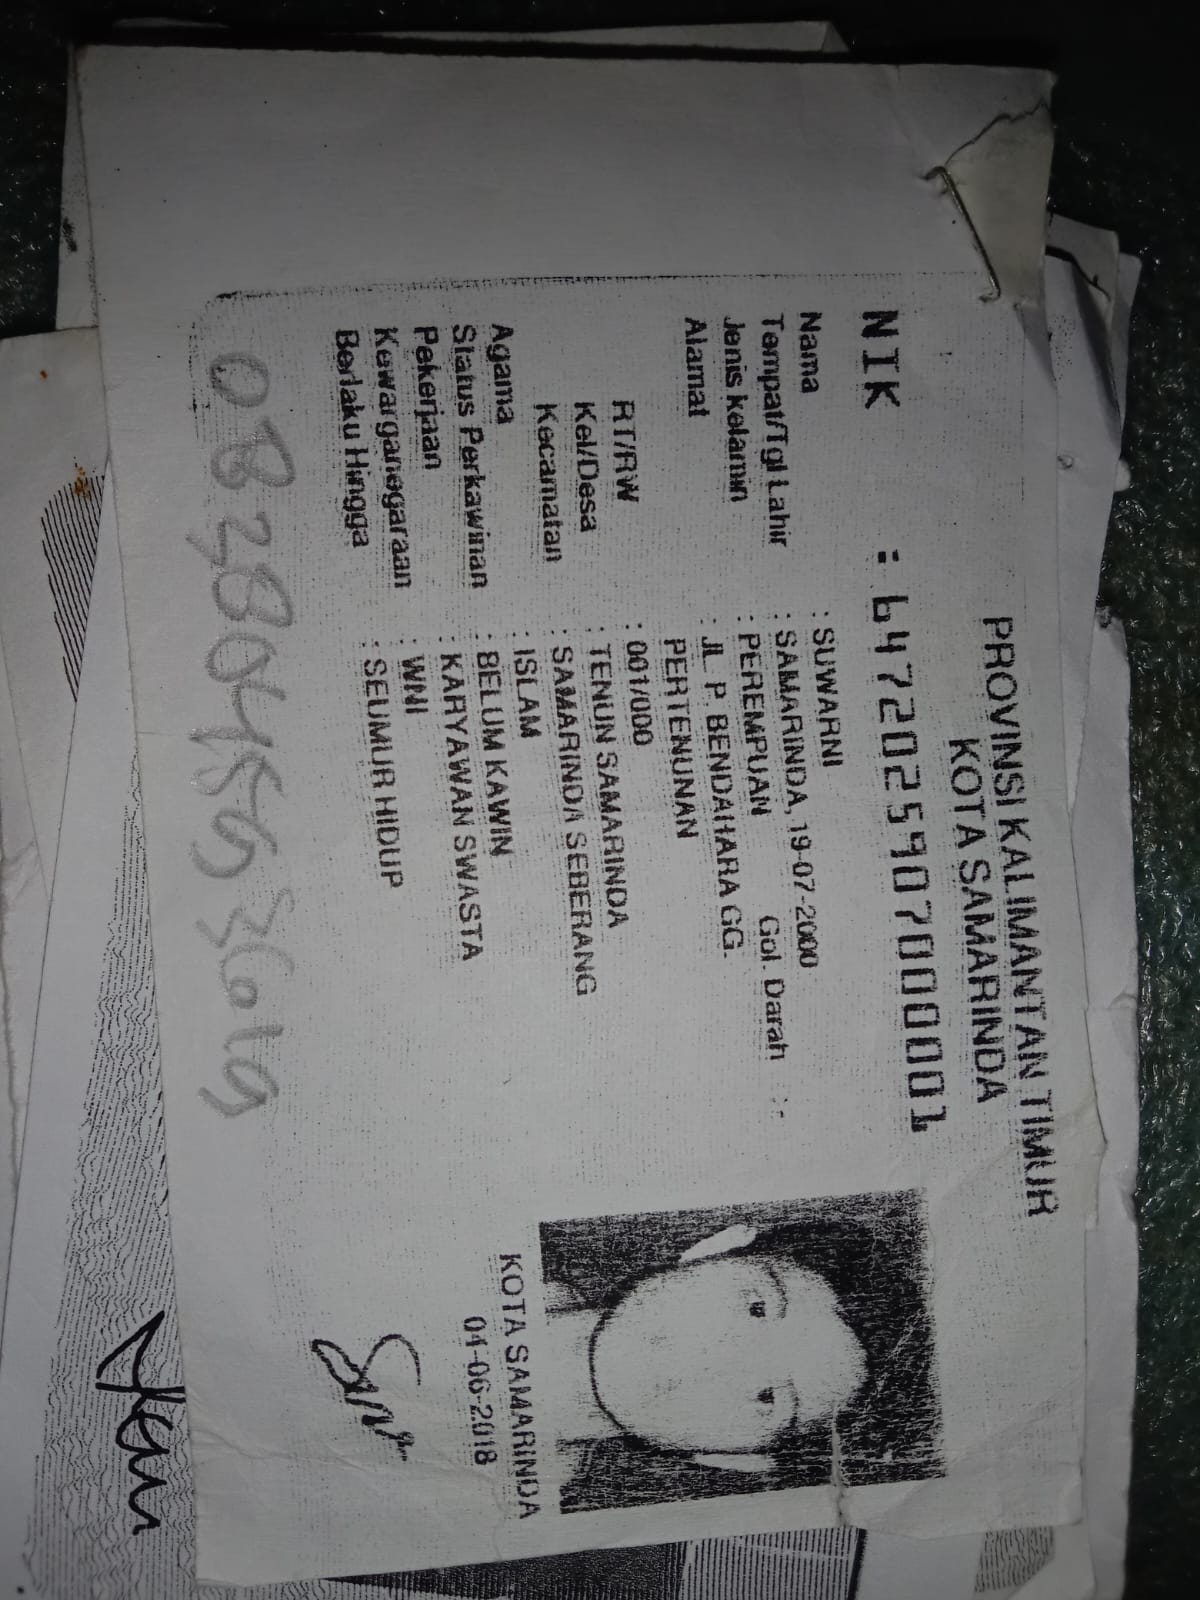 PROVINSI KALIMANTAN TIMUR
KOTA SAMARINDA
NIK : 6472025907000001
Nama : SUWARNI
Tempat/Tgl Lahir : SAMARINDA, 19-07-2000
Jenis kelamin : PEREMPUAN Gol. Darah : -
Alamat : JL. P. BENDAHARA GG.
PERTENUNAN
RT/RW : 001/000
Kel/Desa : TENUN SAMARINDA
Kecamatan : SAMARINDA SEBERANG
Agama : ISLAM
Status Perkawinan : BELUM KAWIN
Pekerjaan : KARYAWAN SWASTA
Kewarganegaraan : WNI
Berlaku Hingga : SEUMUR HIDUP
KOTA SAMARINDA
04-06-2018